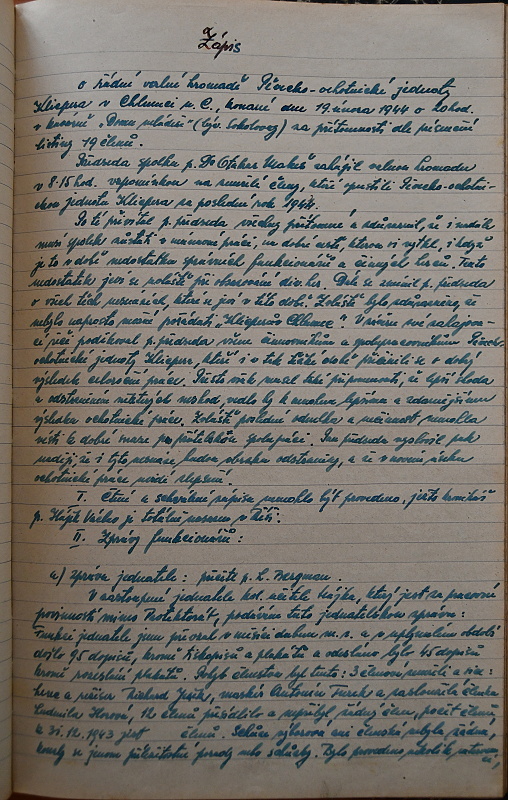 Zápis
o řádné valné hromadě Pěvecko-ochotnické jednoty
Klicpera v Chlumci n. C., konané dne 19. února 1944 o 20 hod.
v kavárně "Domu mládeže" (býv. Sokolovny) za přítomnosti dle presenční
listiny 19 členů.
Předseda spolku p. Otakar zahájil valnou hromadu
v 8.15 hod. vzpomínkou na zemřelé členy, kteří opustili Pěvecko-ochotni-
ckou jednotu Klicpera za poslední rok 1944.
Po té přivítal p. předseda všechny přítomné a zdůraznil, že i nadále
musí spolek zůstati v na dobré cestě, kterou si vytkl, i když
je to v době nedostatku správných funkcionářů a činných herců. Tento
nedostatek jeví se zvláště při obsazování div. her. Dále se zmínil p. předseda
o všech těch nesnázích, které se jeví v této době. Zvláště bylo zdůrazněno, že
nebylo naprosto možné pořádati "Klicperův Chlumec". V závěru své zahajova-
cí řeči poděkoval p. předseda všem činovníkům a spolupracovníkům Pěvecko-
ochotnické jednoty Klicpera, kteří i v tak těžké době přičinili se o dobrý
výsledek celoroční práce. Přesto však musel také připomenouti, že lepší shoda
a odstranění některých neshod, vedlo by k mnohem lepšímu a zdárnějšímu
výsledku ochotnické práce. Zvláště poslední a nečinnost nemohla
vésti k dobré snaze po přátelské spolupráci. Pan předseda vyslovil pak
naději, že i tyto nesnáze budou odstraněny, a že v novém
ochotnické práce nastane zlepšení.
I. Čtení a schválení zápisu nemohlo být provedeno, ježto kronikář
p. Hájek je totálně nasazen v Říši.
II. Zprávy funkcionářů:
a) zpráva jednatele: přečte p. L. Bergman.
V zastoupení jednatele kol. učitele Hájka, který jest na pracovní
povinnosti mimo Protektorát, podávám tuto jednatelskou zprávu:
Funkci jednatele jsem převzal v měsíci dubnu m. r. a v uplynulém období
došlo 95 dopisů, kromě tiskopisů a plakátů a odesláno bylo 45 dopisů
kromě rozeslání plakátů. Pohyb členstva byl tento: 3 členové zemřeli a sice:
herec a režisér Richard, Antonín Turek a zasloužilá členka
Ludmila, 12 členů a nepřibyl žádný člen, počet členů
k 31. 12. 1943 jest členů. Schůze výborová ani členská nebyla žádná,
konaly se jenom příležitostné porady nebo schůzky. Bylo provedeno několik